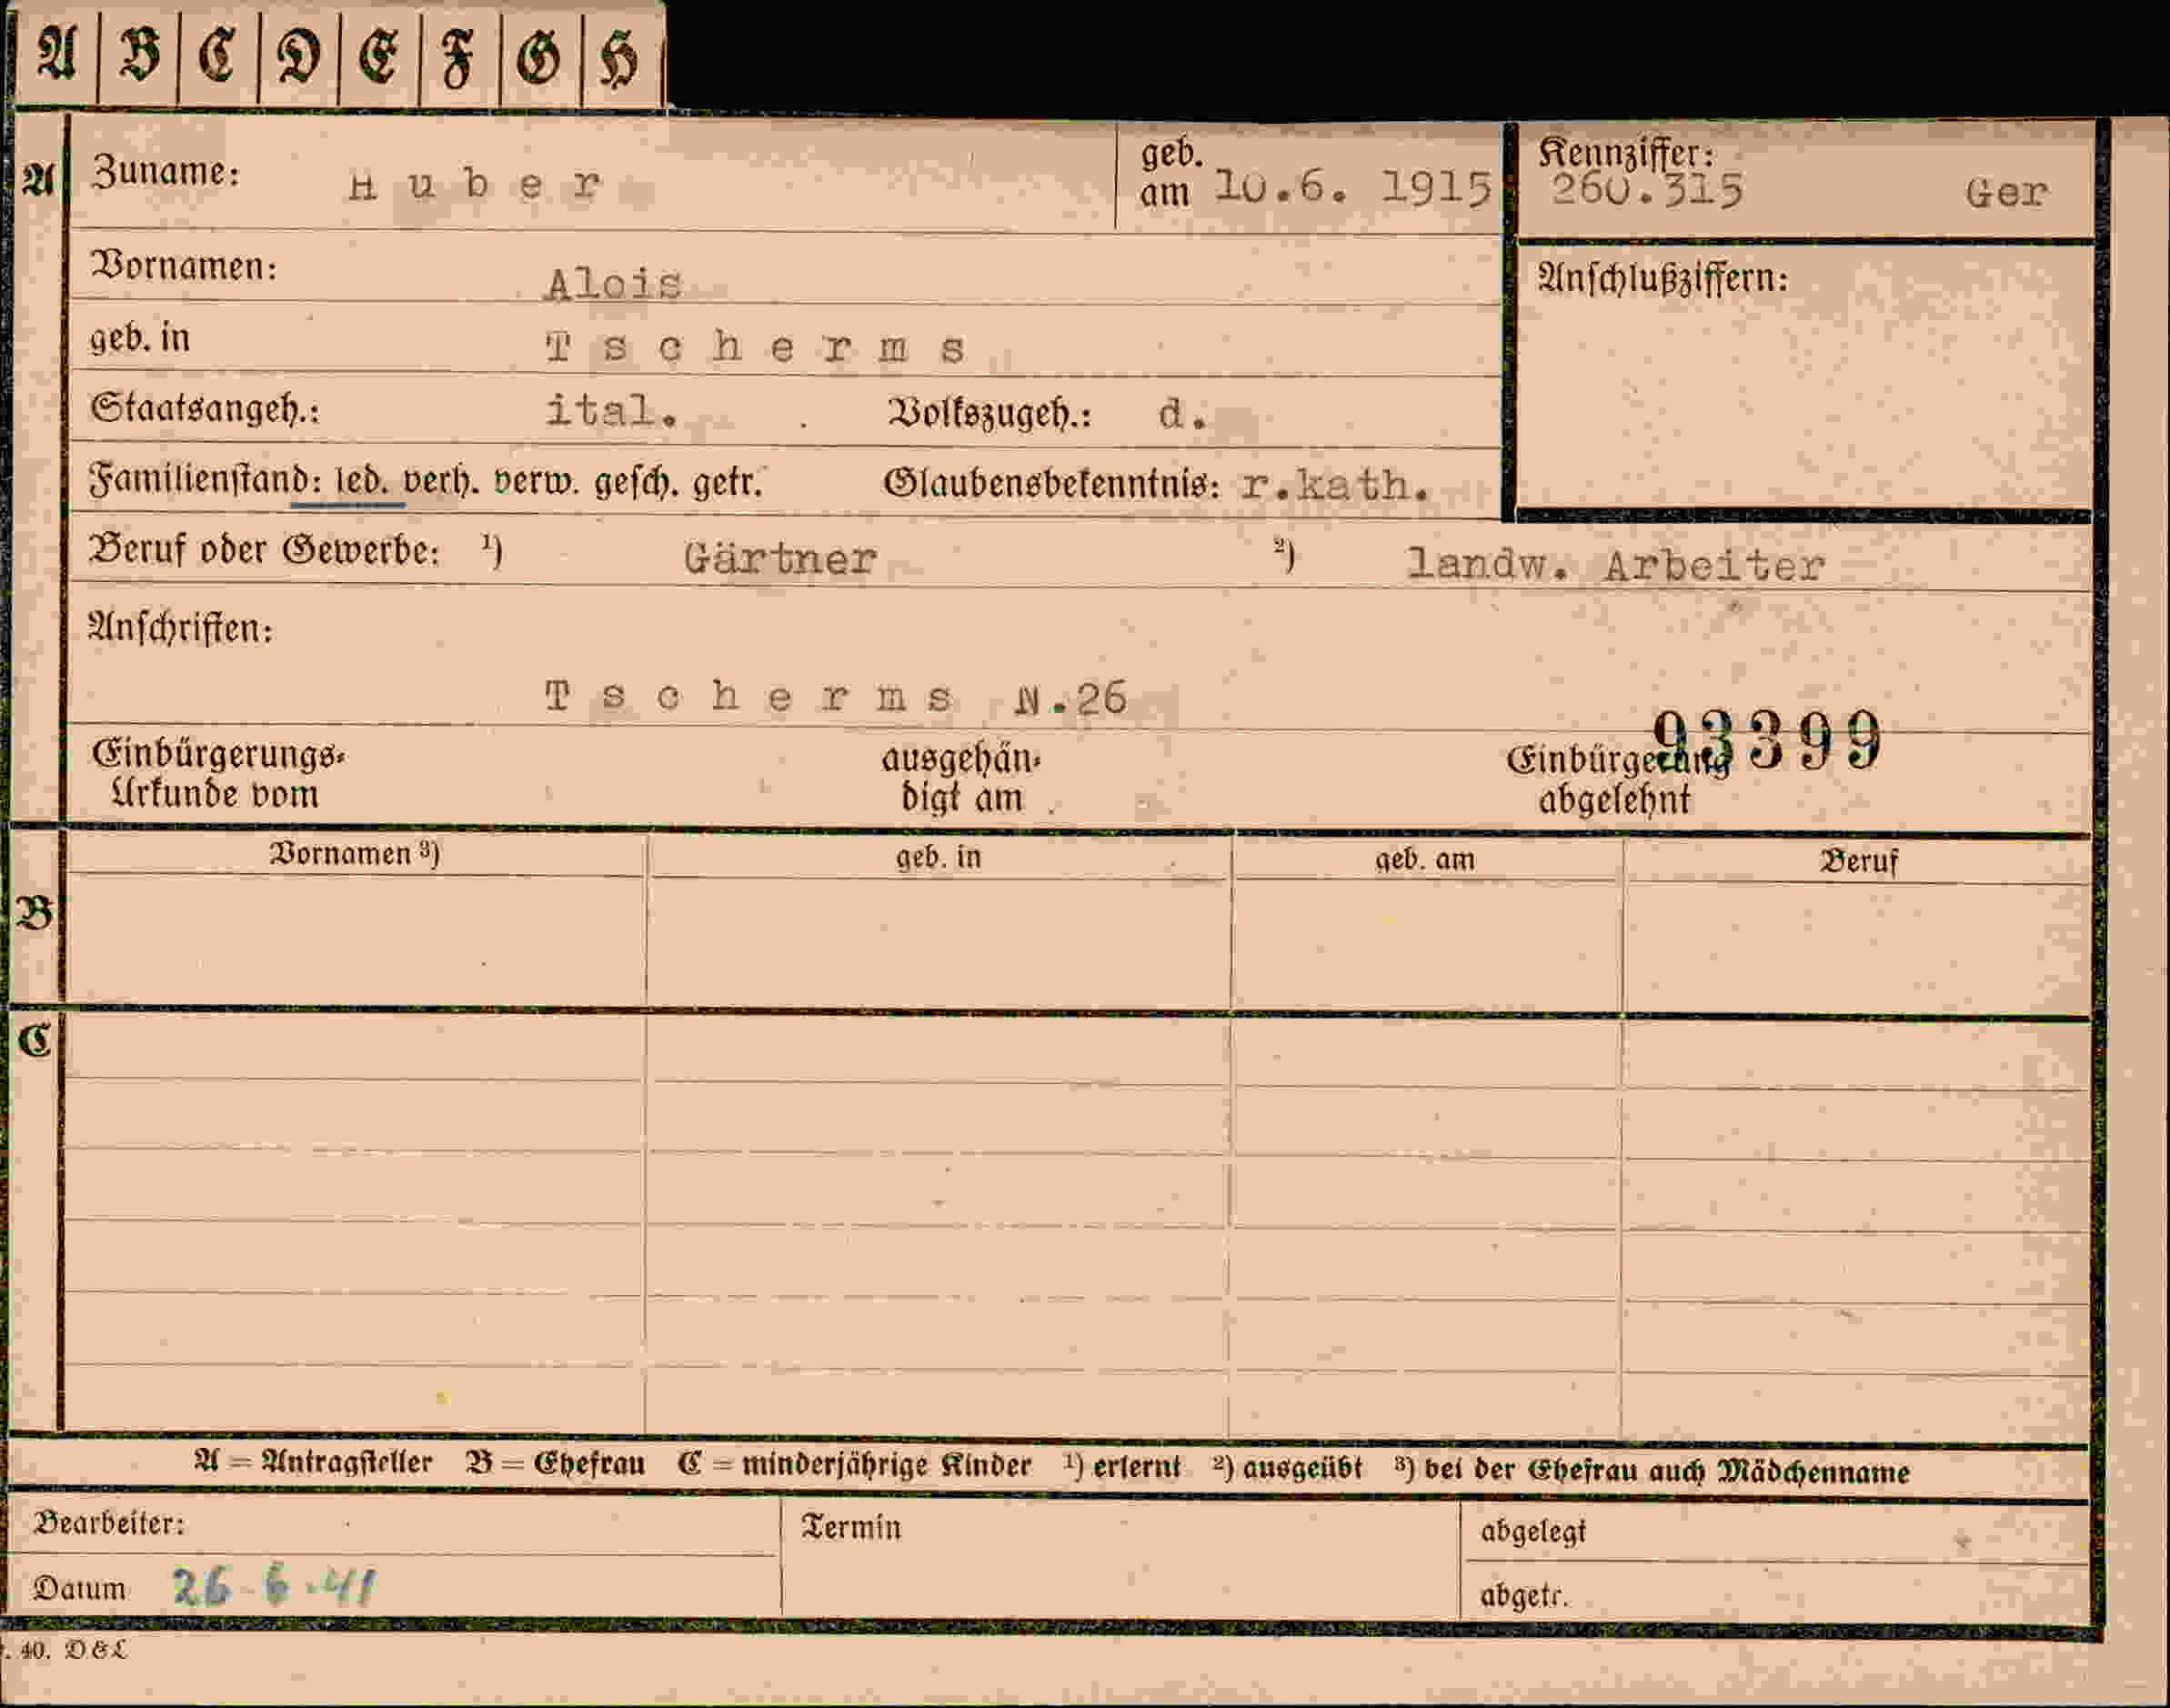 A B C D E F G H
A Zuname: Huber geb. am 10.6. 1915 Kennziffer: 260.315 Ger
Vornamen: Alois Anschlußziffern:
geb. in Tscherms
Staatsangeh.: ital. Volkszugeh.: d.
Familienstand: led. verh. verw. gesch. getr. Glaubensbekenntnis: r.kath.
Beruf oder Gewerbe: ¹) Gärtner ²) landw. Arbeiter
Anschriften:
Tscherms N.26
93399
Einbürgerungs- ausgehän- Einbürgerung
Urkunde vom digt am abgelehnt
Vornamen ³) geb. in geb. am Beruf
B
C
A = Antragsteller B = Ehefrau C = minderjährige Kinder ¹) erlernt ²) ausgeübt ³) bei der Ehefrau auch Mädchenname
Bearbeiter: Termin abgelegt
Datum 26.6.41 abgetr.
. 40. D&L